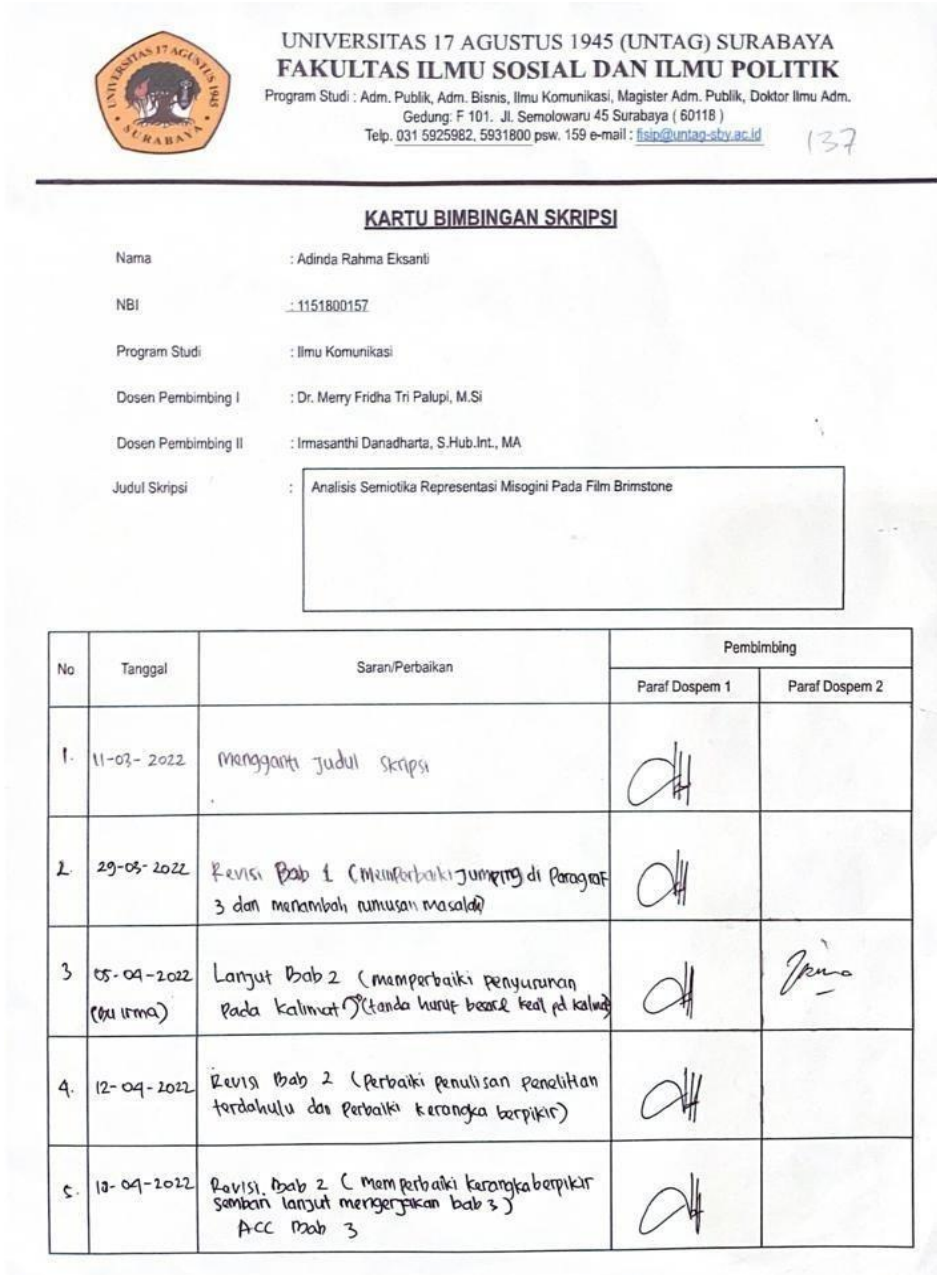 UNIVERSITAS 17 AGUSTUS 1945
SURABAYA
UNIVERSITAS 17 AGUSTUS 1945 (UNTAG) SURABAYA
FAKULTAS ILMU SOSIAL DAN ILMU POLITIK
Program Studi : Adm. Publik, Adm. Bisnis, Ilmu Komunikasi, Magister Adm. Publik, Doktor Ilmu Adm.
Gedung: F 101. Jl. Semolowaru 45 Surabaya ( 60118 )
Telp. 031 5925982, 5931800 psw. 159 e-mail : fisip@untag-sby.ac.id
137
KARTU BIMBINGAN SKRIPSI
Nama : Adinda Rahma Eksanti
NBI : 1151800157
Program Studi : Ilmu Komunikasi
Dosen Pembimbing I : Dr. Merry Fridha Tri Palupi, M.Si
Dosen Pembimbing II : Irmasanthi Danadharta, S.Hub.Int., MA
Judul Skripsi : Analisis Semiotika Representasi Misogini Pada Film Brimstone
No Tanggal Saran/Perbaikan Pembimbing
Paraf Dospem 1 Paraf Dospem 2
1. 11-03-2022 mengganti Judul Skripsi
2. 29-03-2022 Revisi Bab 1 (Memperbaiki Jumping di Paragraf
3 dan menambah rumusan masalah)
3 05-04-2022 Lanjut Bab 2 (memperbaiki penyusunan
(bu irma) Pada kalimat) (tanda huruf besar kecil pd kalimat)
4. 12-04-2022 Revisi Bab 2 (Perbaiki penulisan penelitian
terdahulu dan Perbaiki kerangka berpikir)
5. -04-2022 Revisi Bab 2 (memperbaiki kerangka berpikir
lanjut mengerjakan bab 3)
ACC Bab 3